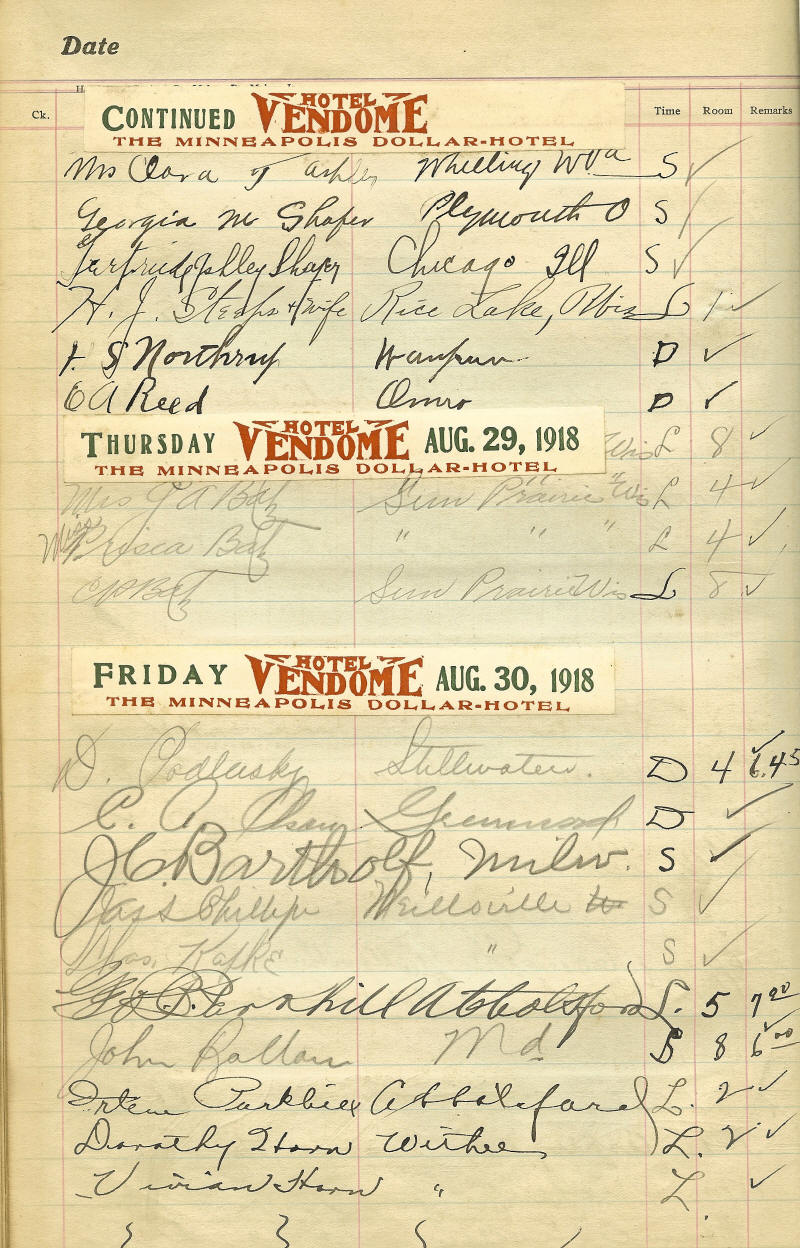 Date
Ck. Time Room Remarks
CONTINUED HOTEL VENDOME
THE MINNEAPOLIS DOLLAR-HOTEL
Mrs Clara J Ashley Wheeling W Va S ✓
Georgia M Shafer Plymouth O S ✓
Gertrude Ashley Shafer Chicago Ill S ✓
H. J. Steaps & Wife Rice Lake, Wis L 1 ✓
S Northrup Waupun D ✓
E A Reed Omro D ✓
THURSDAY HOTEL VENDOME AUG. 29, 1918
Wis L 8 ✓
THE MINNEAPOLIS DOLLAR-HOTEL
Mrs J A Batz Sun Prairie Wis L 4 ✓
Miss Prisca Batz " " " L 4 ✓
Batz Sun Prairie Wis L 8 ✓
FRIDAY HOTEL VENDOME AUG. 30, 1918
THE MINNEAPOLIS DOLLAR-HOTEL
D. Podlasky Stillwater. D 4 ✓ 6.45
C. A. Olson Greenwood D ✓
J.C. Bartholf, Milw. S ✓
Jass Phillips Neillsville W S ✓
Chas. Kafke " S ✓
Geo P. Parkhill Abbotsford L. 5 7.20
John Rallan Md S 8 ✓ 6.00
Irlene Parkhill Abbotsford L. 2 ✓
Dorothy Horn Withee L. 2 ✓
Vivian Horn " L ✓